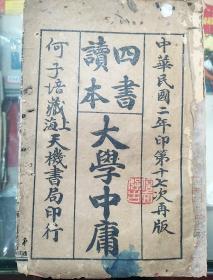 中華民國二年印第十七次再版
四書
讀本
大學中庸
何子培藏
上海天機書局印行